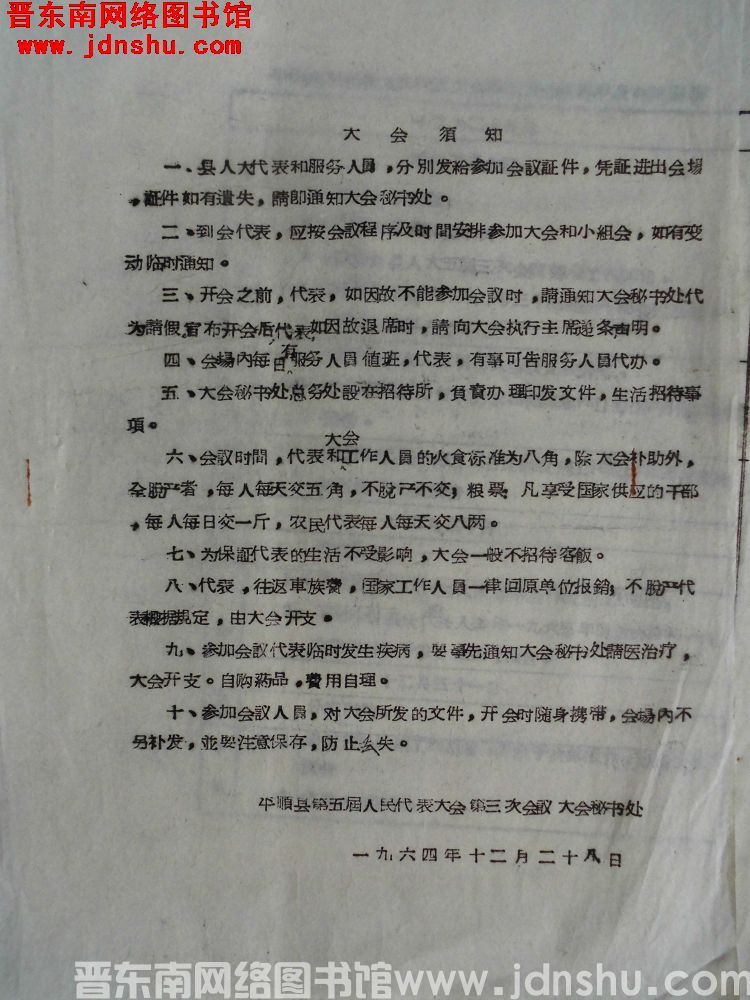 晋东南网络图书馆
www.jdnshu.com
大会須知
一、县人大代表和服务人員，分别发給参加会議証件，凭証进出会場
，証件如有遺失，請即通知大会秘书处。
二、到会代表，应按会議程序及时間安排参加大会和小組会，如有变
动临时通知。
三、开会之前，代表，如因故不能参加会議时，請通知大会秘书处代
为請假，宣布开会后代表，如因故退席时，請向大会执行主席递条声明。
四、会場內每日有服务人員值班，代表，有事可告服务人員代办。
五、大会秘书处总务处設在招待所，負責办理印发文件，生活招待事
項。
六、会議时間，代表和大会工作人員的火食标准为八角，除大会补助外，
全脫产者，每人每天交五角，不脫产不交；粮票；凡享受国家供应的干部
，每人每日交一斤，农民代表每人每天交八两。
七、为保証代表的生活不受影响，大会一般不招待客飯。
八、代表，往返車族費，国家工作人員一律回原单位报銷；不脫产代
表根据規定，由大会开支。
九、参加会議代表临时发生疾病，要事先通知大会秘书处請医治疗，
大会开支。自购葯品，費用自理。
十、参加会議人員，对大会所发的文件，开会时随身携带，会場內不
另补发，並要注意保存，防止丢失。
平順县第五届人民代表大会第三次会議大会秘书处
一九六四年十二月二十八日
晋东南网络图书馆www.jdnshu.com